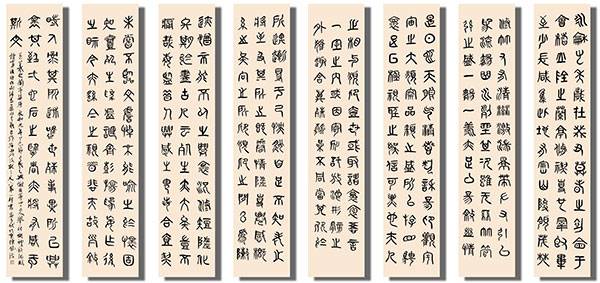 永和九年歲在癸丑暮春之初會于
會稽山陰之蘭亭脩禊事也群賢畢
至少長咸集此地有崇山峻領茂林
脩竹又有清流激湍映帶左右引以
為流觴曲水列坐其次雖無絲竹管
弦之盛一觴一詠亦足以暢敘幽情
是日也天朗氣清惠風和暢仰觀宇
宙之大俯察品類之盛所以遊目騁
懷足以極視聽之娛信可樂也夫人
之相與俯仰一世或取諸懷抱悟言
一室之內或因寄所託放浪形骸之
外雖趣舍萬殊靜躁不同當其欣於
所遇暫得於己快然自足不知老之
將至及其所之既倦情隨事遷感慨
係之矣向之所欣俛仰之間已為陳
跡猶不能不以之興懷況脩短隨化
終期於盡古人云死生亦大矣豈不
痛哉每覽昔人興感之由若合一契
未嘗不臨文嗟悼不能喻之於懷固
知一死生為虛誕齊彭殤為妄作後
之視今亦猶今之視昔悲夫故列敘
時人錄其所述雖世殊事異所以興
懷其致一也後之覽者亦將有感於
斯文